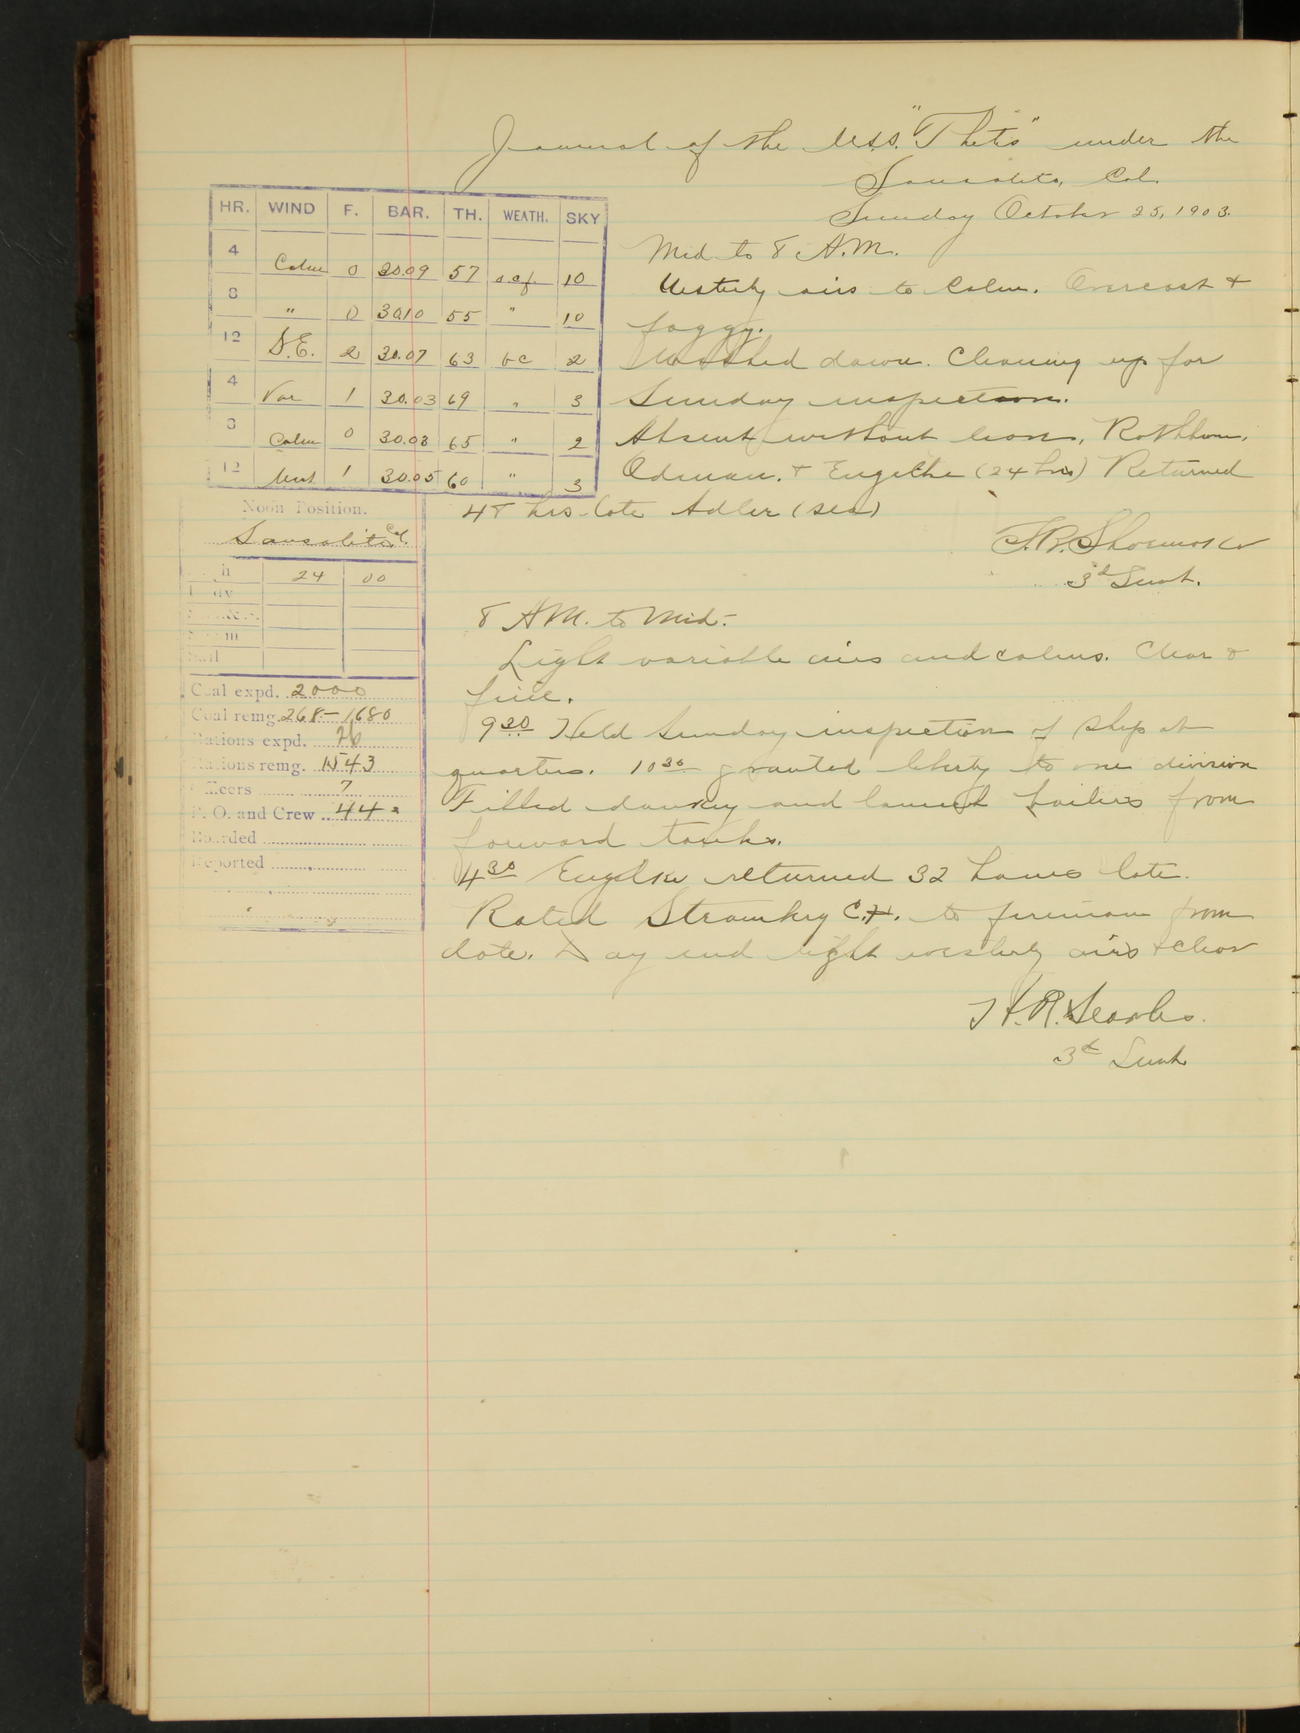 Journal of the U.S.S. "Thetis" under the
Sausalito, Cal.
Sunday October 25, 1903.
HR. WIND F. BAR. TH. WEATH. SKY
4 Calm 0 30.09 57 o.c.f. 10
8 " 0 30.10 55 " 10
12 S.E. 2 30.07 63 bc 2
4 Var 1 30.03 69 " 3
8 Calm 0 30.03 65 " 2
12 West 1 30.05 60 " 3
Noon Position.
Sausalito Cal.
24 00
Coal expd. 2000
Coal remg. 268-1680
Rations expd. 26
Rations remg. 1543
Officers 7
P. O. and Crew 44
Boarded
Reported
Mid to 8 A.M.
Westerly airs to Calm. Overcast &
foggy.
Washed down. Cleaning up for
Sunday inspection.
Absent without leave, Rathbun,
Odman, & Engelke (24 hrs) Returned
48 hrs late Adler (sea)
F.R. Shoemaker
3d Lieut.
8 A.M. to Mid.-
Light variable airs and calms. Clear &
fine.
9 30 Held Sunday inspection of ship at
quarters. 10 30 granted liberty to one division
Filled donkey and launch boilers from
forward tanks.
4 30 Engelke returned 32 hours late.
Rated C.H. to fireman from
date. Day end light westerly airs & clear
H.R. Searles.
3d Lieut